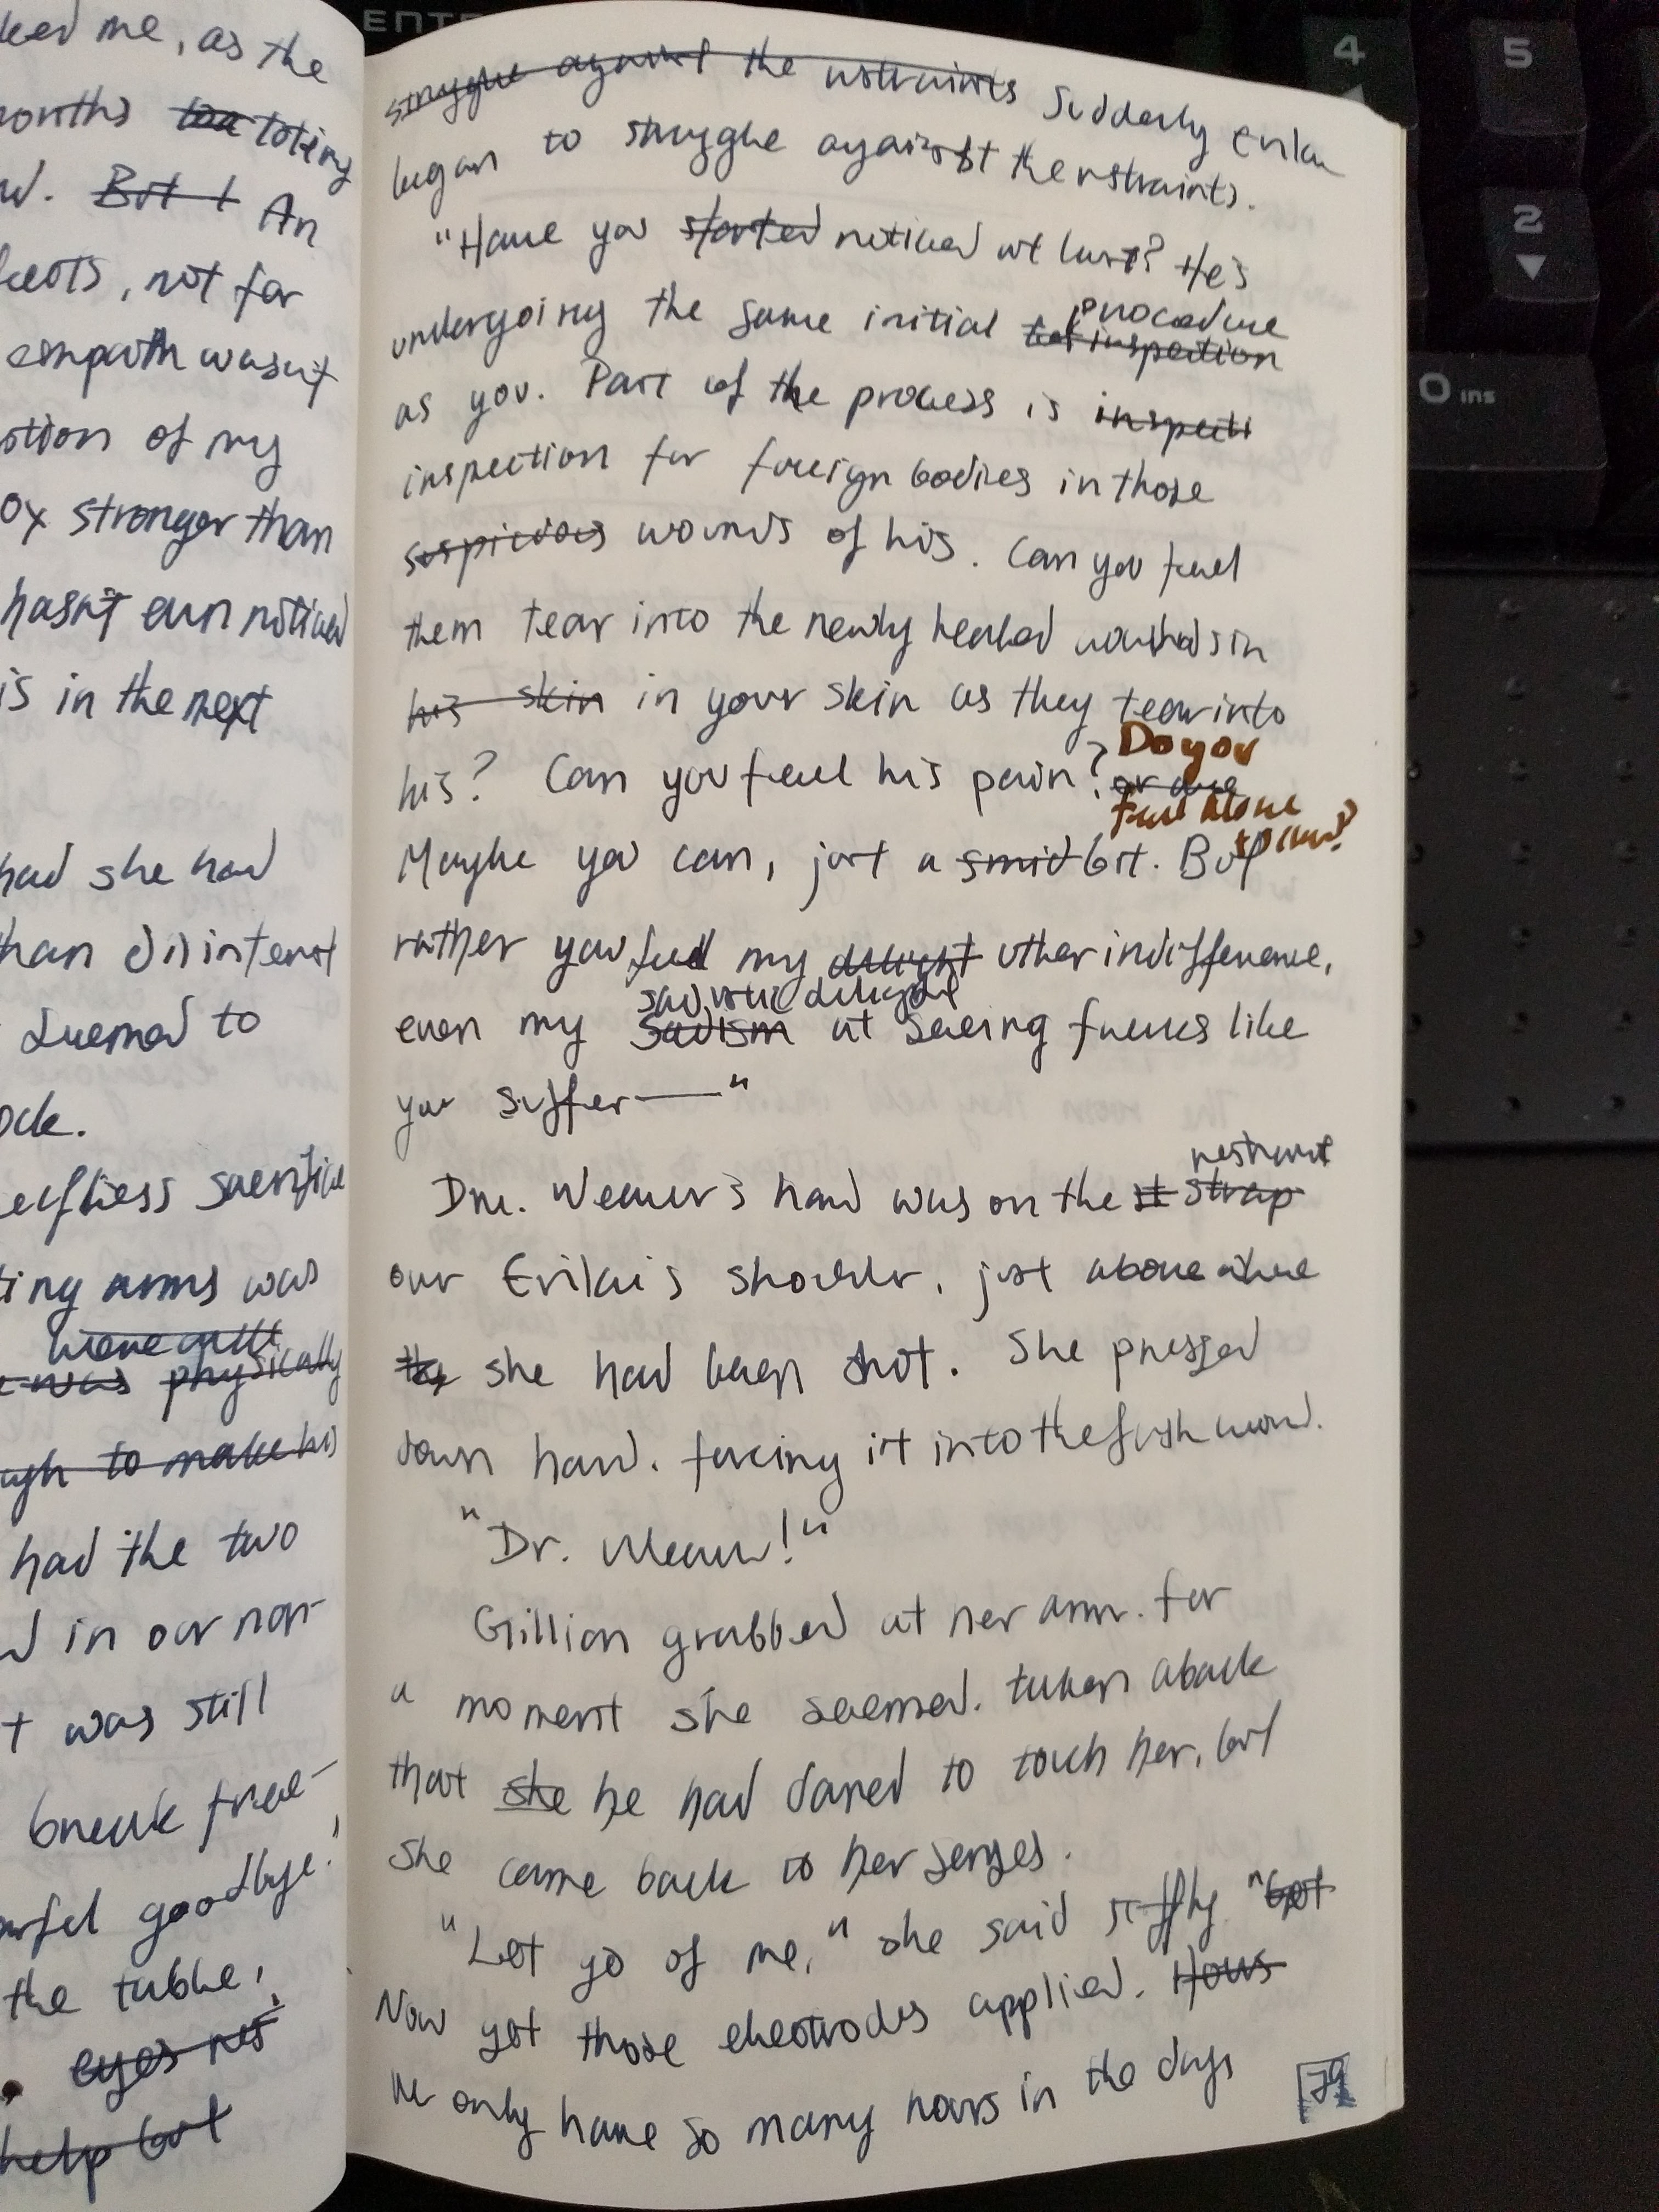 ked me, as the
months too toting
An
But I
not for
empath wasn't
of my
0x stronger than
hasn't even noticed
is in the next
had she had
than disinterest
deemed to
selfless sacrifice
arms was
were
was physically
to make his
had the two
in our non-
t was still
break free
goodbye.
the table,
eyes
help but
ENTE
4
5
2
0 ins
struggle against the restraints Suddenly Erika
began to struggle against the restraints.
"Have you started noticed at last? He's
procedure
undergoing the same initial inspection
as you. Part of the process is inspecti
inspection for foreign bodies in those
suspicious wounds of his. Can you feel
them tear into the newly healed wounds in
his skin in your skin as they tear into
Do you
his? Can you feel his pain? or are
feel
Maybe you can, just a smid bit. But
rather you feel my delight utter indifference,
sadistic delight
even my sadism at seeing freaks like
you suffer—"
restraint
Dr. Weaver's hand was on the st strap
our Erika's shoulder, just above where
the she had been shot. She pressed
down hard. forcing it into the fresh wound.
"Dr. Weaver!"
Gillian grabbed at her arm. For
a moment she seemed. taken aback
that she he had dared to touch her, but
she came back to her senses.
"Let go of me," she said stiffly "Get
Now get those electrodes applied. Hours
We only have so many hours in the days
79